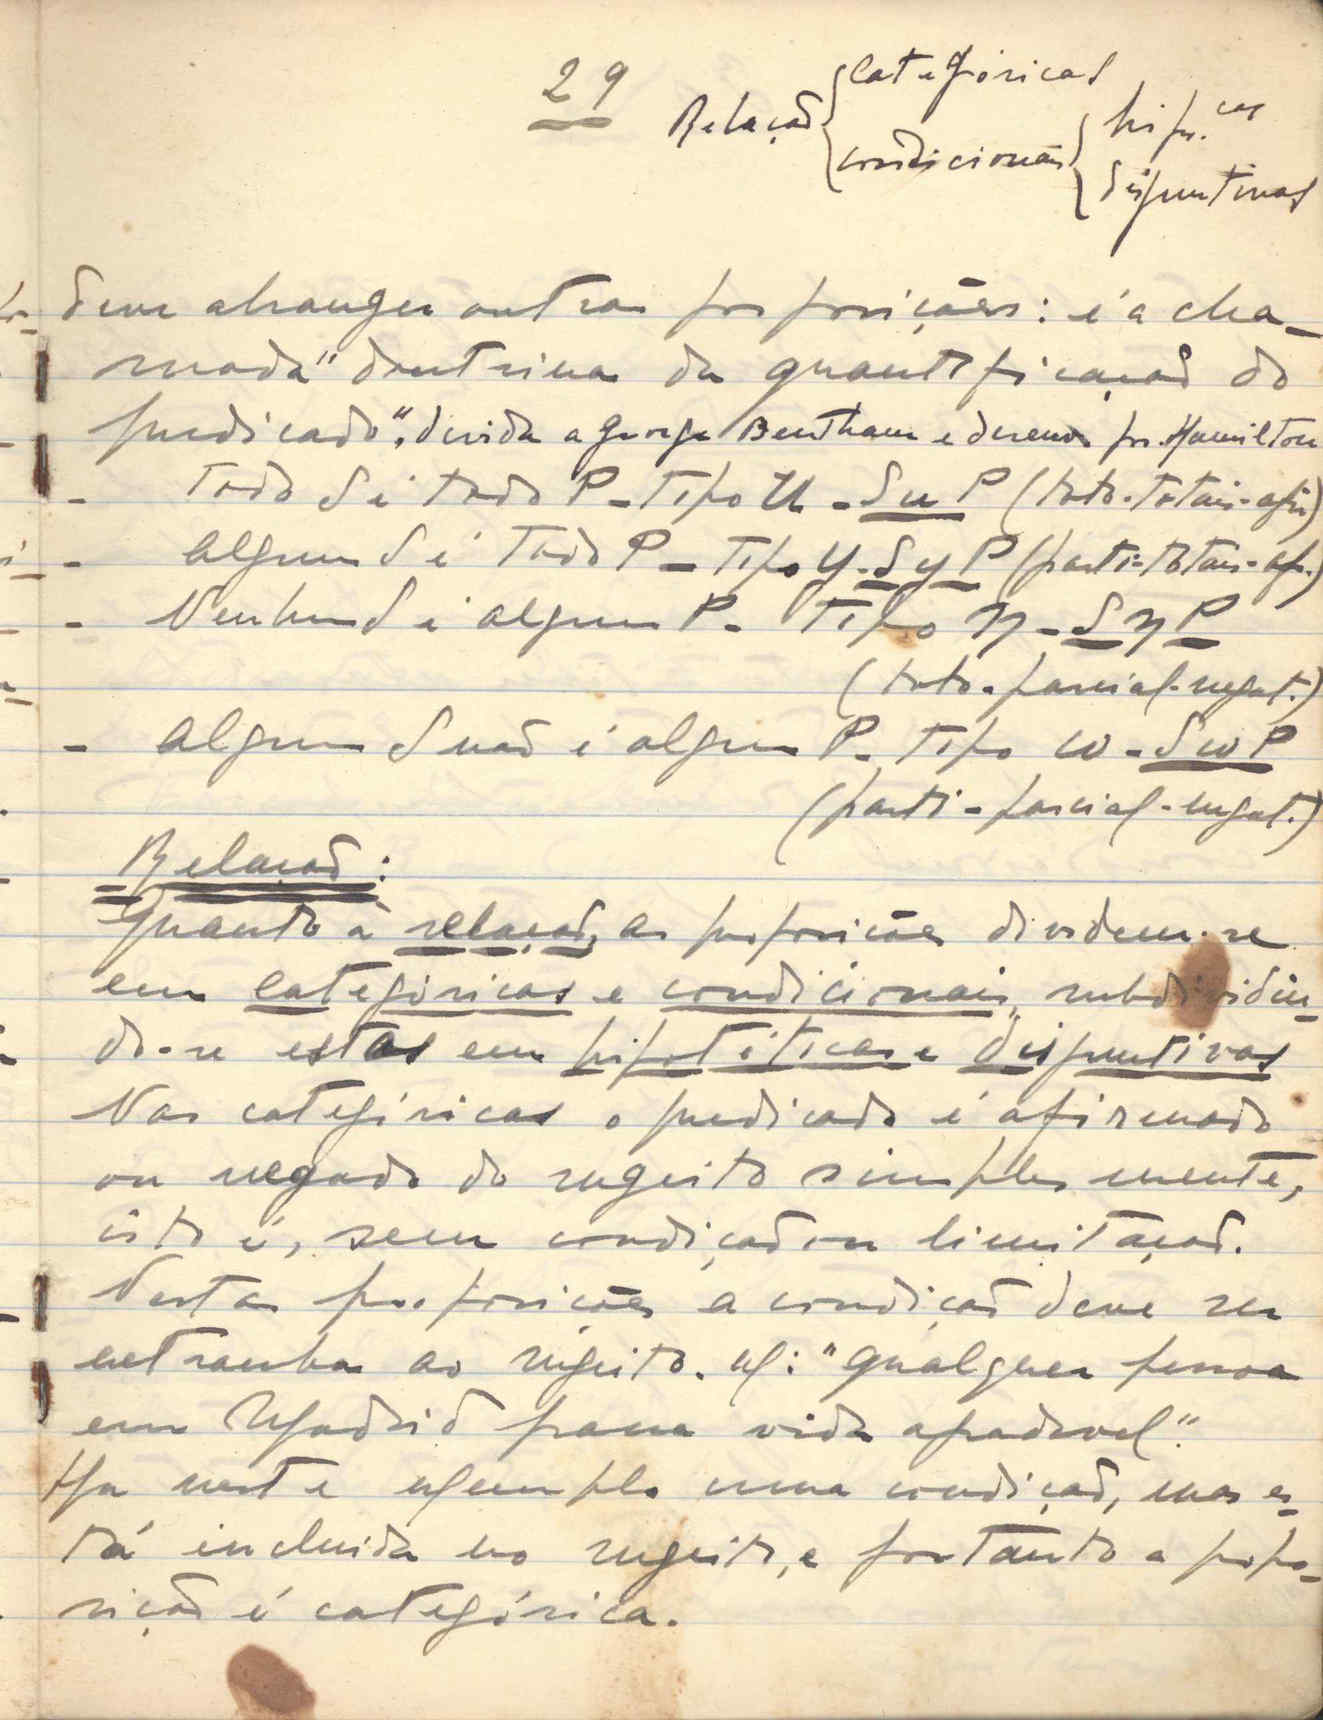 29
Relação { categóricas
condicionais { hip.cas
disjuntivas
dem abranger outras proposições: é a cha-
mada "doutrina da quantificação do
predicado", devida a George Bentham e desenv. por Hamilton
- Todo S é todo P - Tipo U - S u P (toto-totais-afir)
- Algum S é Todo P - Tipo Y - S y P (parti-totais-afr.)
- Nenhum S é algum P - Tipo η - S η P
(toto-parcial-negat.)
- Algum S não é algum P - Tipo ω - S ω P
(parti-parcial-negat.)
Relação:
Quanto à relação, as proposições dividem-se
em categóricas e condicionais, subdividin-
do-se estas em hipotéticas e disjuntivas
Nas categóricas o predicado é afirmado
ou negado do sugeito simplesmente,
isto é, sem condição ou limitação.
Nestas proposições a condição deve ser
extranha ao sugeito. ex: "Qualquer pessoa
em Madrid passa vida agradavel".
Ha neste exemplo uma condição, mas es-
tá incluida no sugeito, e portanto a propo-
sição é categórica.